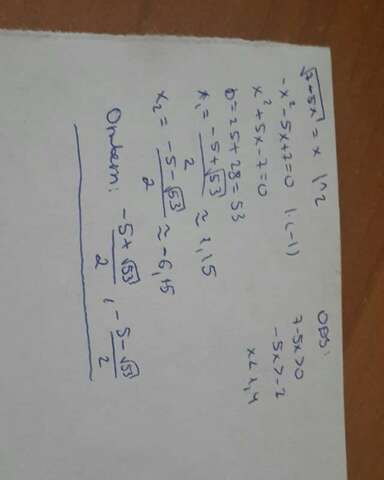 √(7-5x) = x |^2
-x² - 5x + 7 = 0 |·(-1)
x² + 5x - 7 = 0
D = 25 + 28 = 53
x₁ = (-5+√53)/2 ≈ 1,15
x₂ = (-5-√53)/2 ≈ -6,15
Ответ: (-5+√53)/2 ; (-5-√53)/2
ОДЗ:
7-5x>0
-5x>-7
x<1,4